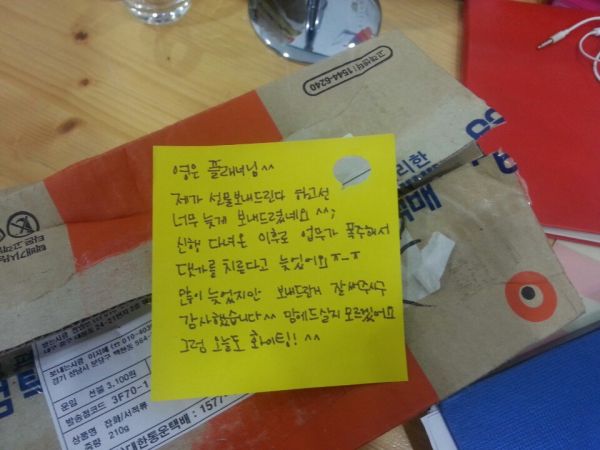 고객센터:1544-6240
리한
택배
영은 플래너님^^
제가 선물보내드린다 하고선
너무 늦게 보내드렸네요 ^^;
신행 다녀온 이후로 업무가 폭주해서
댓가를 치른다고 늦었어요ㅜ_ㅜ
많이 늦었지만 보내드린거 잘 받아주시구
감사했습니다^^ 맘에드실지 모르겠어요
그럼 오늘도 화이팅! ^^
보내는사람
경기 성남시 분당구 백현동
운임 선불 3,100원
발송점코드 3F70-1
상품명 잡화/서적류
중량 210g
대한통운택배 : 1577